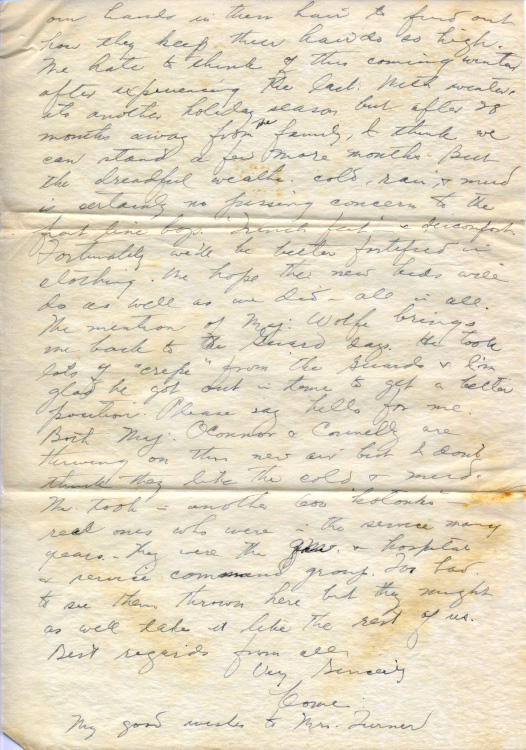 our hands in their hair to find out
how they keep their hairdo so high.
We hate to think of this coming winter
after experiencing the last. With winter,
its another holiday season but after 28
months away from the family, I think we
can stand a few more months. But
the dreadful weather cold, rain, & mud
is certainly no passing concern to the
front line boys. "Trench feet" & discomfort.
Fortunately we'll be better fortified in
clothing. We hope the new kids will
do as well as we did - all in all.
The mention of Maj. Wolfe brings
me back to the Guard days. He took
lots of "crepe" from the Guards & I'm
glad he got out in time to get a better
position. Please say hello for me.
Both Maj. Oconnor & Connelly are
thriving on this new air but I don't
think they like the cold & mud.
We took - another 600
real ones who were in the service many
years. They were the & hospital
& service command group. Too bad
to see them thrown here but they might
as well take it like the rest of us.
Best regards from all
Very Sincerely
My good wishes to Mrs. Turner